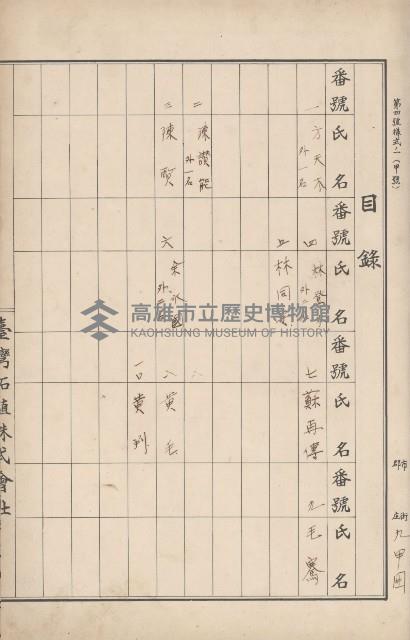 第四號樣式ノ一(甲號)
目錄
番號 氏名 番號 氏名 番號 氏名 番號 氏名
一 方天 外一名
二 陳讚能 外一名
三 陳賢
四 林 外
五 林同
六 外
七 蘇再傳
八 黃毛
九 毛騫
一〇 黃
市 郡
街 庄
九甲圍
臺灣石植株式會社
高雄市立歷史博物館
KAOHSIUNG MUSEUM OF HISTORY